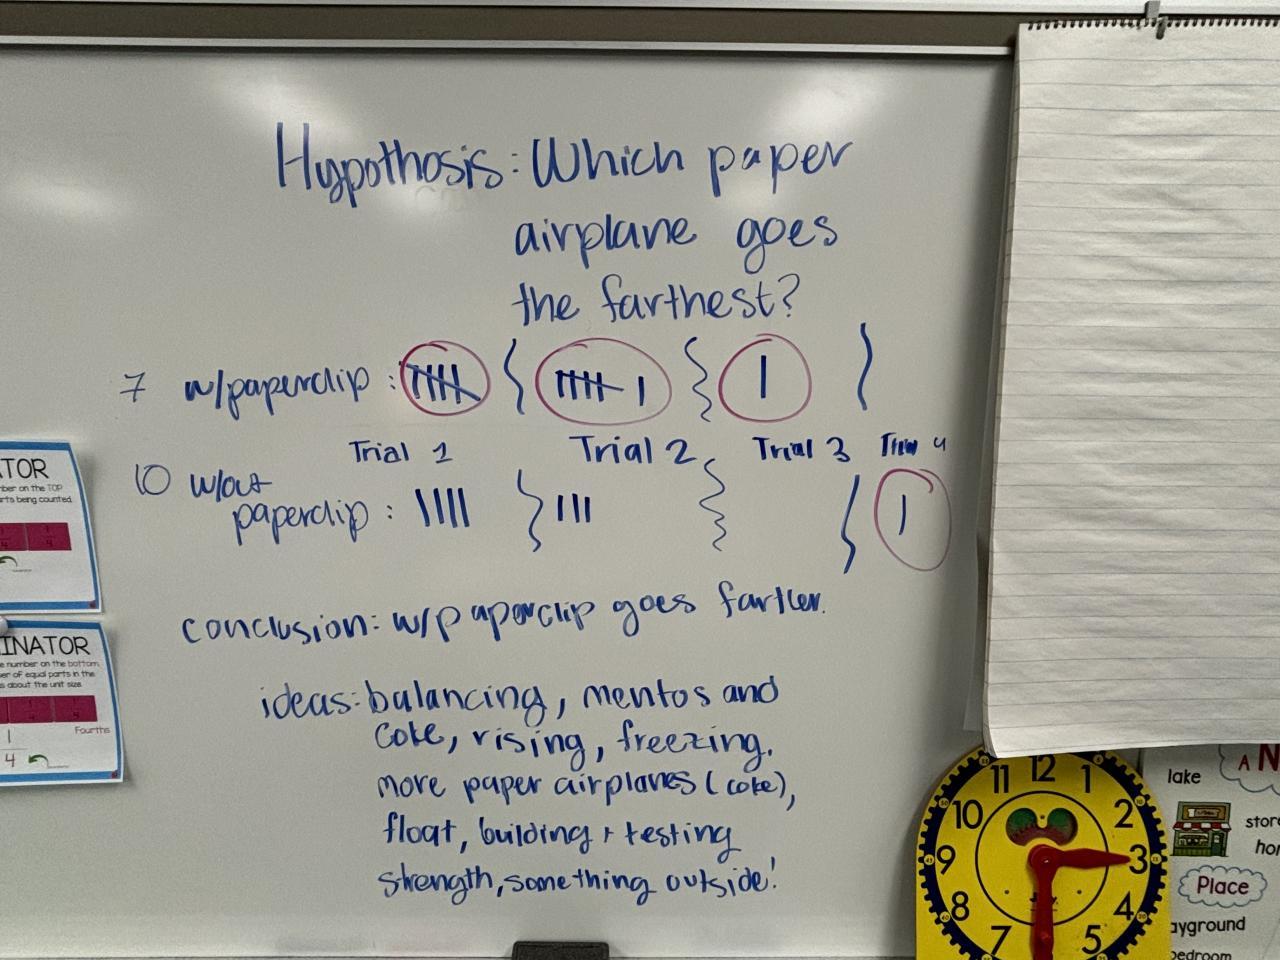 Hypothosis: Which paper
airplane goes
the farthest?
7 w/paperclip :
Trial 1 Trial 2 Trial 3
10 w/out
paperclip :
conclusion: w/paperclip goes farther.
ideas: balancing, mentos and
coke, rising, freezing,
more paper airplanes (coke),
float, building + testing
strength, something outside!
TOR
ber on the TOP
rts being counted.
INATOR
e number on the bottom
er of equal parts in the
s about the unit size.
Fourths
1
4
11 12 1
10 2
9 3
8 4
7 5
A N
lake
store
hor
Place
ayground
bedroom